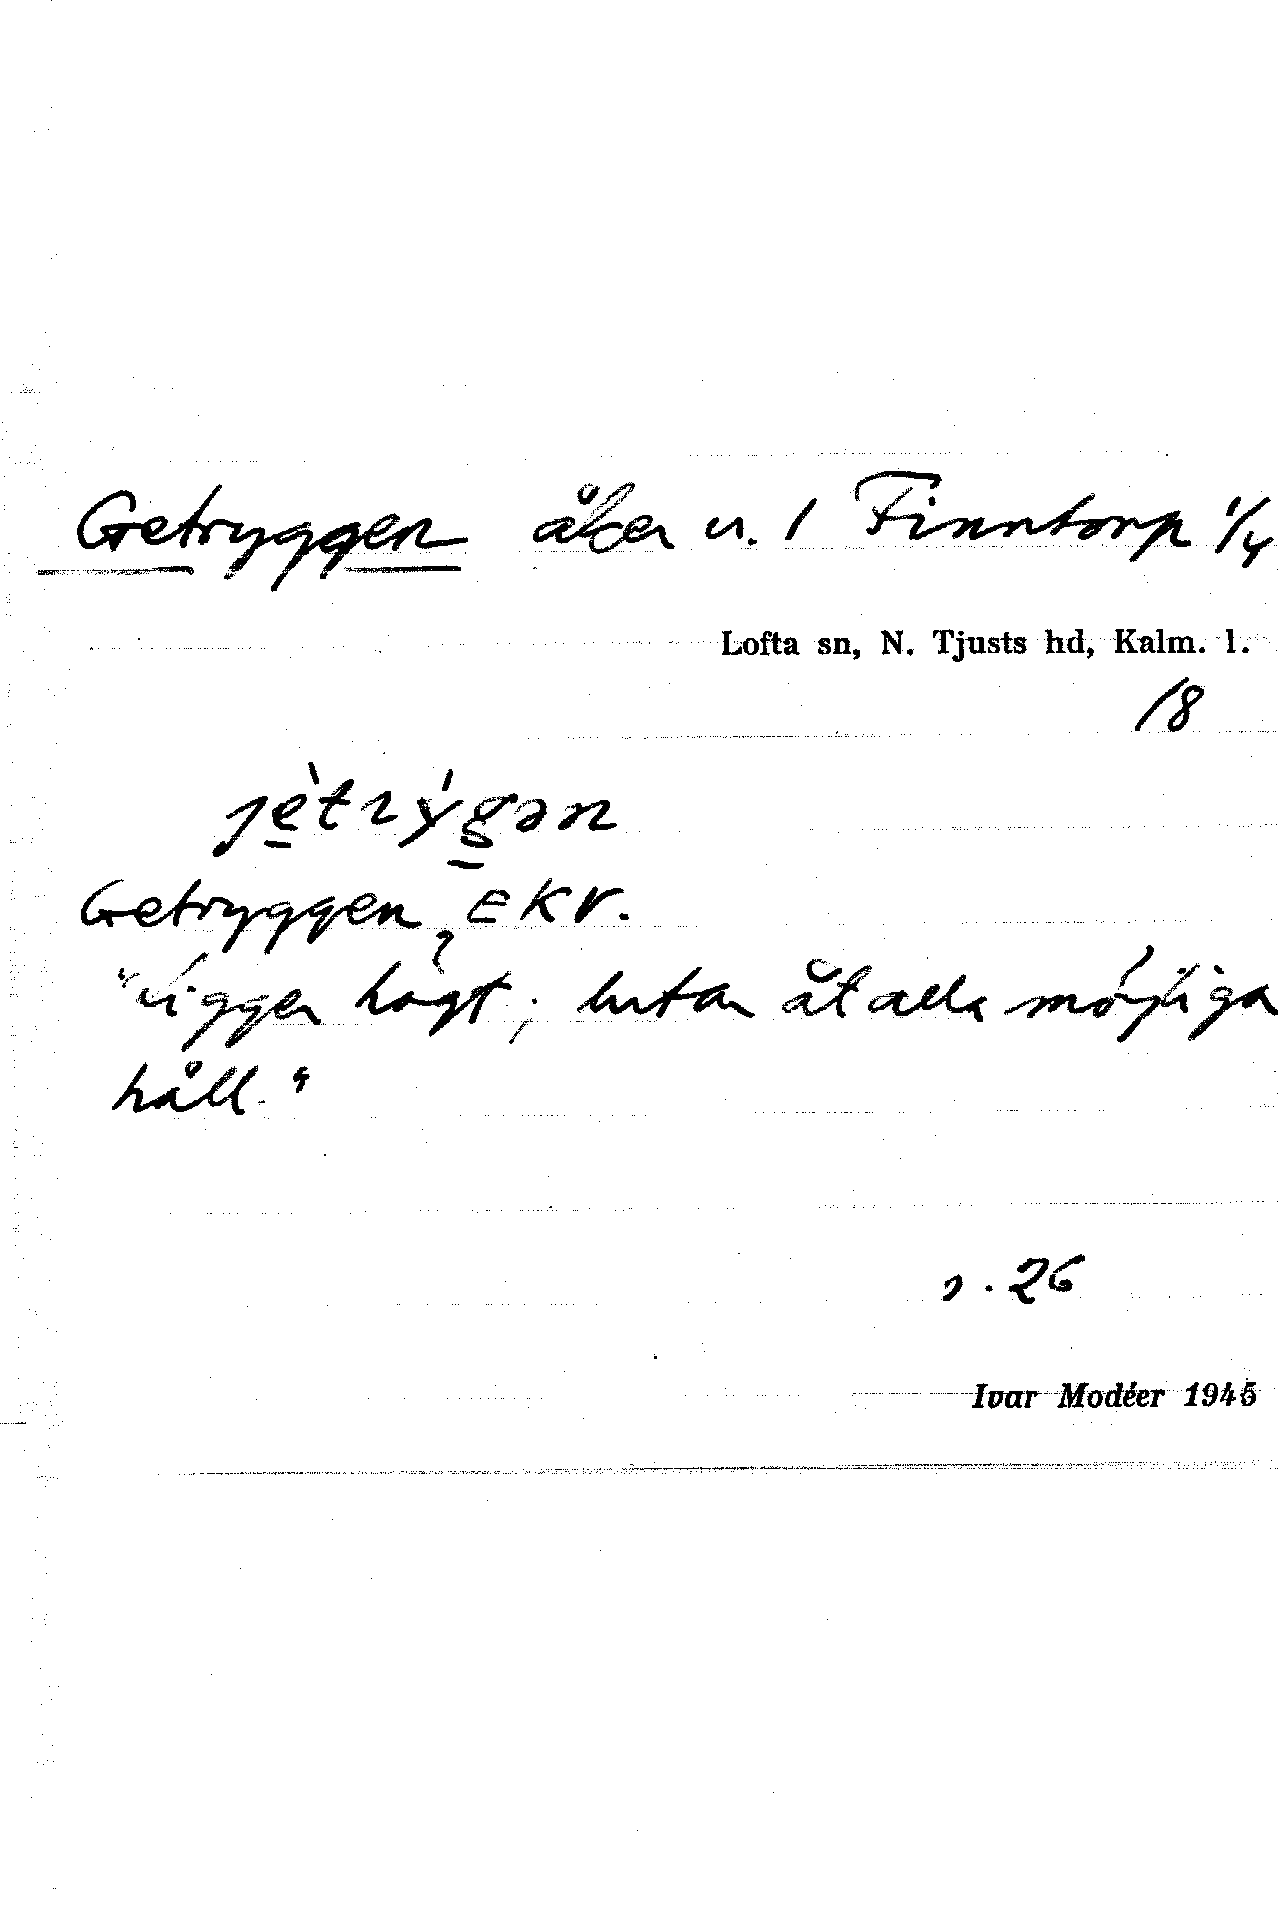 Getryggen åker n. 1 Finntorp 1/4
Lofta sn, N. Tjusts hd, Kalm. l.
18
jè̱trýg̱ən
Getryggen, EKV.
"Ligger högt; lutar åt alla möjliga
håll."
s. 26
Ivar Modéer 1945